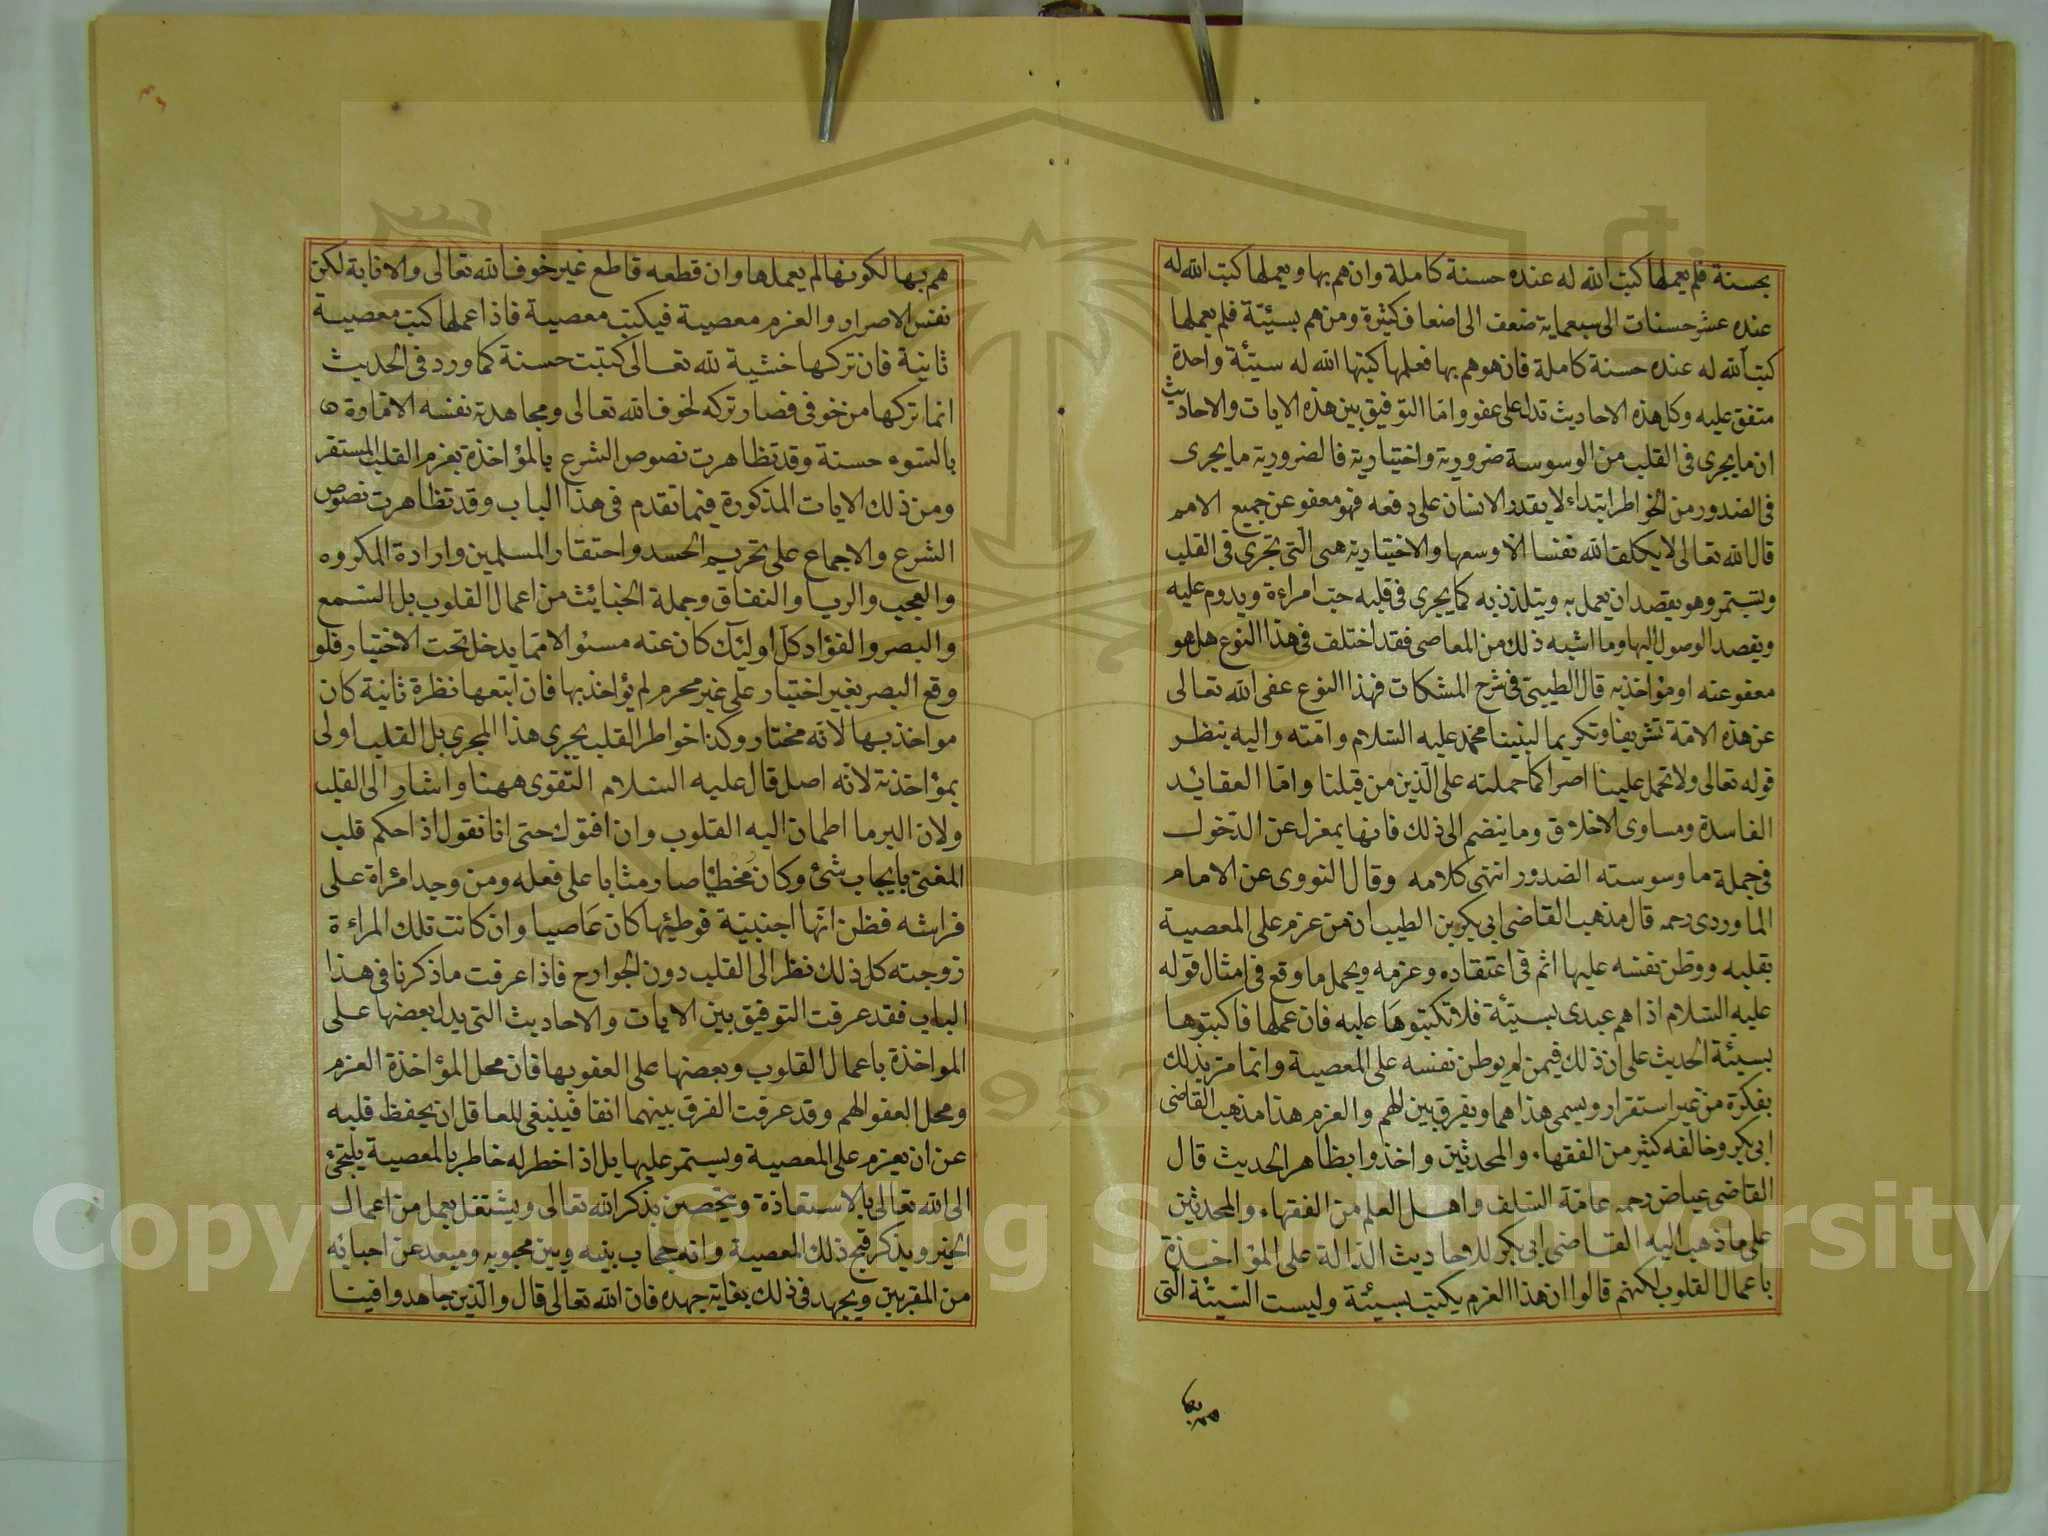 بحسنة فلم يعملها كتب الله له عنده حسنة كاملة وان هم بها ويعملها كتب الله له
عنده عشر حسنات الى سبعماية ضعف الى اضعاف كثيرة ومن هم بسيئة فلم يعملها
كتب الله له عنده حسنة كاملة فان هو هم بها فعلمها كتبها الله له سيئة واحدة
متفق عليه وكل هذه الاحاديث تدل على عفو واما التوفيق بين هذه الايات والاحاديث
ان ما يجرى فى القلب من الوسوسة ضرورية واختيارية فالضرورية ما يجرى
فى الصدور من الخواطر ابتداء لا يقدر الانسان على دفعه فهو معفو عن جميع الامم
قال الله تعالى لا يكلف الله نفسا الا وسعها والاختيارية هى التى تجرى فى القلب
ويستمر وهو يقصد ان يعمل به ويتلذذ به كما يجرى فى قلبه حب امراءة ويدوم عليه
ويقصد الوصول اليها وما اشبه ذلك من المعاصى فقد اختلف فى هذا النوع هل هو
معفو عنه او مؤاخذ به قال الطيبى فى شرح المشكات فهذا النوع عفى الله تعالى
عن هذه الامة تشريفا وتكريما لنبينا محمد عليه السلام وامته واليه ينظر
قوله تعالى ولا تحمل علينا اصرا كما حملته على الذين من قبلنا واما العقايد
الفاسدة ومساوى الاخلاق وما ينضم الى ذلك فانها بمعزل عن الدخول
فى جملة ما وسوسته الصدور انتهى كلامه وقال النووى عن الامام
الماوردى رحمه قال مذهب القاضى ابى بكر بن الطيب ان من عزم على المعصية
بقلبه ووطن نفسه عليها اثم فى اعتقاده وعزمه ويحمل ما وقع فى امثال قوله
عليه السلام اذا هم عبدى بسيئة فلا تكتبوها عليه فان عملها فاكتبوها
بسيئة الحديث على ان ذلك فيمن لم يوطن نفسه على المعصية وانما مر بذلك
بفكرة من غير استقرار ويسمى هذا هما ويفرق بين الهم والعزم هذا مذهب القاضى
ابى بكر وخالفه كثير من الفقهاء والمحدثين واخذوا بظاهر الحديث قال
القاضى عياض رحمه عامة السلف واهل العلم من الفقهاء والمحدثين
على ما ذهب اليه القاضى ابى بكر للاحاديث الدالة على المؤاخذة
باعمال القلوب لكنهم قالوا ان هذا العزم يكتب بسيئة وليست السيئة التى
هم بها
هم بها لكونها لم يعملها وان قطعه قاطع غير خوف الله تعالى والانابة لكن
نفس الاصرار والعزم معصية فيكتب معصية فاذا عملها كتب معصية
ثانية فان تركها خشية لله تعالى كتبت حسنة كما ورد فى الحديث
انما تركها من خوفى فصار تركه لخوف الله تعالى ومجاهدته نفسه الامارة
بالسوء حسنة وقد تظاهرت نصوص الشرع بالمؤاخذة بعزم القلب المستقر
ومن ذلك الايات المذكورة فيما تقدم فى هذا الباب وقد تظاهرت نصوص
الشرع والاجماع على تحريم الحسد واحتقار المسلمين وارادة المكروه
والعجب والريا والنفاق وجملة الخبائث من اعمال القلوب بل السمع
والبصر والفؤاد كل اولئك كان عنه مسئولا مما يدخل تحت الاختيار فلو
وقع البصر بغير اختيار على غير محرم لم يؤاخذ بها فان اتبعها نظرة ثانية كان
مواخذ بها لانه مختار وكذا خواطر القلب يجرى هذا المجرى بل القلب اولى
بمؤاخذته لانه اصل قال عليه السلام التقوى ههنا واشار الى القلب
ولان البر ما اطمان اليه القلوب وان افتوك حتى انا نقول اذا حكم قلب
المفتى بايجاب شئ وكان مخطئا صار مثابا على فعله ومن وجد امراة على
فراشه فظن انها اجنبية فوطئها كان عاصيا وان كانت تلك المراءة
زوجته كل ذلك نظر الى القلب دون الجوارح فاذا عرفت ما ذكرنا فى هذا
الباب فقد عرفت التوفيق بين الايات والاحاديث التى يدل بعضها على
المواخذة باعمال القلوب وبعضها على العفو بها فان محل المؤاخذة العزم
ومحل العفو الهم وقد عرفت الفرق بينهما انفا فينبغى للعاقل ان يحفظ قلبه
عن ان يعزم على المعصية ويستمر عليها بل اذا خطر له خاطر بالمعصية يلتجئ
الى الله تعالى بالاستعاذة ويتحصن بذكر الله تعالى ويشتغل بعمل من اعمال
الخير ويذكر قبح ذلك المعصية وانه حجاب بينه وبين محبوبه ومبعد عن احبائه
من المقربين ويجهد فى ذلك بغاية جهده فان الله تعالى قال والذين جاهدوا فينا
Copyright © King Saud University